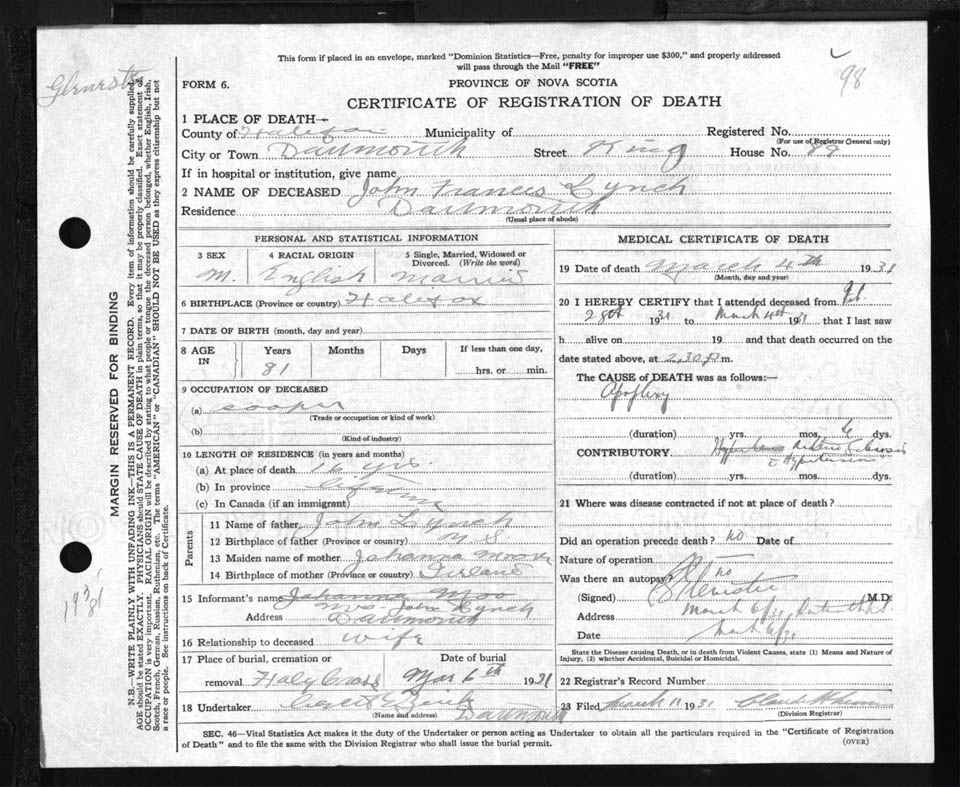 This form if placed in an envelope, marked "Dominion Statistics—Free, penalty for improper use $300," and properly addressed
will pass through the Mail "FREE"
98
FORM 6.
PROVINCE OF NOVA SCOTIA
CERTIFICATE OF REGISTRATION OF DEATH
1 PLACE OF DEATH—
County of Halifax Municipality of Registered No.
(For use of Registrar General only)
City or Town Dartmouth Street King House No.
If in hospital or institution, give name
2 NAME OF DECEASED John Francis Lynch
Residence Dartmouth
(Usual place of abode)
PERSONAL AND STATISTICAL INFORMATION
3 SEX 4 RACIAL ORIGIN 5 Single, Married, Widowed or
Divorced. (Write the word)
M. English Married
6 BIRTHPLACE (Province or country) Halifax
7 DATE OF BIRTH (month, day and year)
8 AGE IN Years Months Days If less than one day,
81 hrs. or min.
9 OCCUPATION OF DECEASED
(a) cooper
(Trade or occupation or kind of work)
(b)
(Kind of industry)
10 LENGTH OF RESIDENCE (in years and months)
(a) At place of death 16 yrs.
(b) In province Lifetime
(c) In Canada (if an immigrant)
Parents
11 Name of father John Lynch
12 Birthplace of father (Province or country) N S
13 Maiden name of mother Johanna Moore
14 Birthplace of mother (Province or country) Ireland
15 Informant's name Johanna Moo
Mrs John Lynch
Address Dartmouth
16 Relationship to deceased wife
17 Place of burial, cremation or Date of burial
removal Holy Cross Mar 6th 1931
18 Undertaker Dartmouth
(Name and address)
MEDICAL CERTIFICATE OF DEATH
19 Date of death March 4th 1931
(Month, day and year)
20 I HEREBY CERTIFY that I attended deceased from Feb.
28th 1931 to March 4th 1931 that I last saw
h alive on 19 and that death occurred on the
date stated above, at 2.30 p m.
The CAUSE of DEATH was as follows:—
Apoplexy
(duration) yrs. mos. dys.
CONTRIBUTORY Arterio Sclerosis
Hypertension
(duration) yrs. mos. dys.
21 Where was disease contracted if not at place of death?
Did an operation precede death? no Date of
Nature of operation
Was there an autopsy? no
(Signed) M.D.
Address March 6/31
Date March 6/31
State the Disease causing Death, or in death from Violent Causes, state (1) Means and Nature of
Injury, (2) whether Accidental, Suicidal or Homicidal.
22 Registrar's Record Number
23 Filed March 11 1931
(Division Registrar)
SEC. 46—Vital Statistics Act makes it the duty of the Undertaker or person acting as Undertaker to obtain all the particulars required in the "Certificate of Registration
of Death" and to file the same with the Division Registrar who shall issue the burial permit.
(OVER)
MARGIN RESERVED FOR BINDING
N.B.—WRITE PLAINLY WITH UNFADING INK—THIS IS A PERMANENT RECORD. Every item of information should be carefully supplied.
AGE should be stated EXACTLY. PHYSICIANS should STATE CAUSE OF DEATH in plain terms, so that it may be properly classified. Exact statement of
OCCUPATION is very important. RACIAL ORIGIN will be described by stating to what people or tongue the deceased person belonged, whether English, Irish,
Scotch, French, German, Russian, Ruthenian, etc. The terms "AMERICAN" or "CANADIAN" SHOULD NOT BE USED as they express citizenship but not
a race or people. See instructions on back of Certificate.